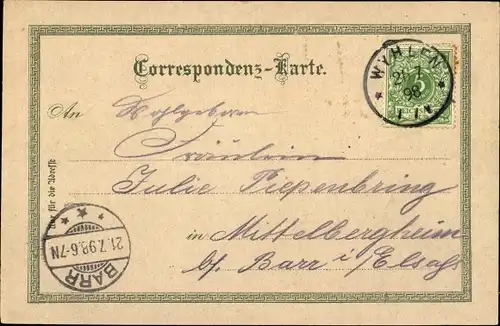 Correspondenz-Karte.
WYHLEN
21 7
98
An Wohlgeboren
Fräulein
Julie Piepenbring
in Mittelbergheim
b/. Barr i/Elsaß
Nur für die Adresse
21.7.98.6-7N
BARR